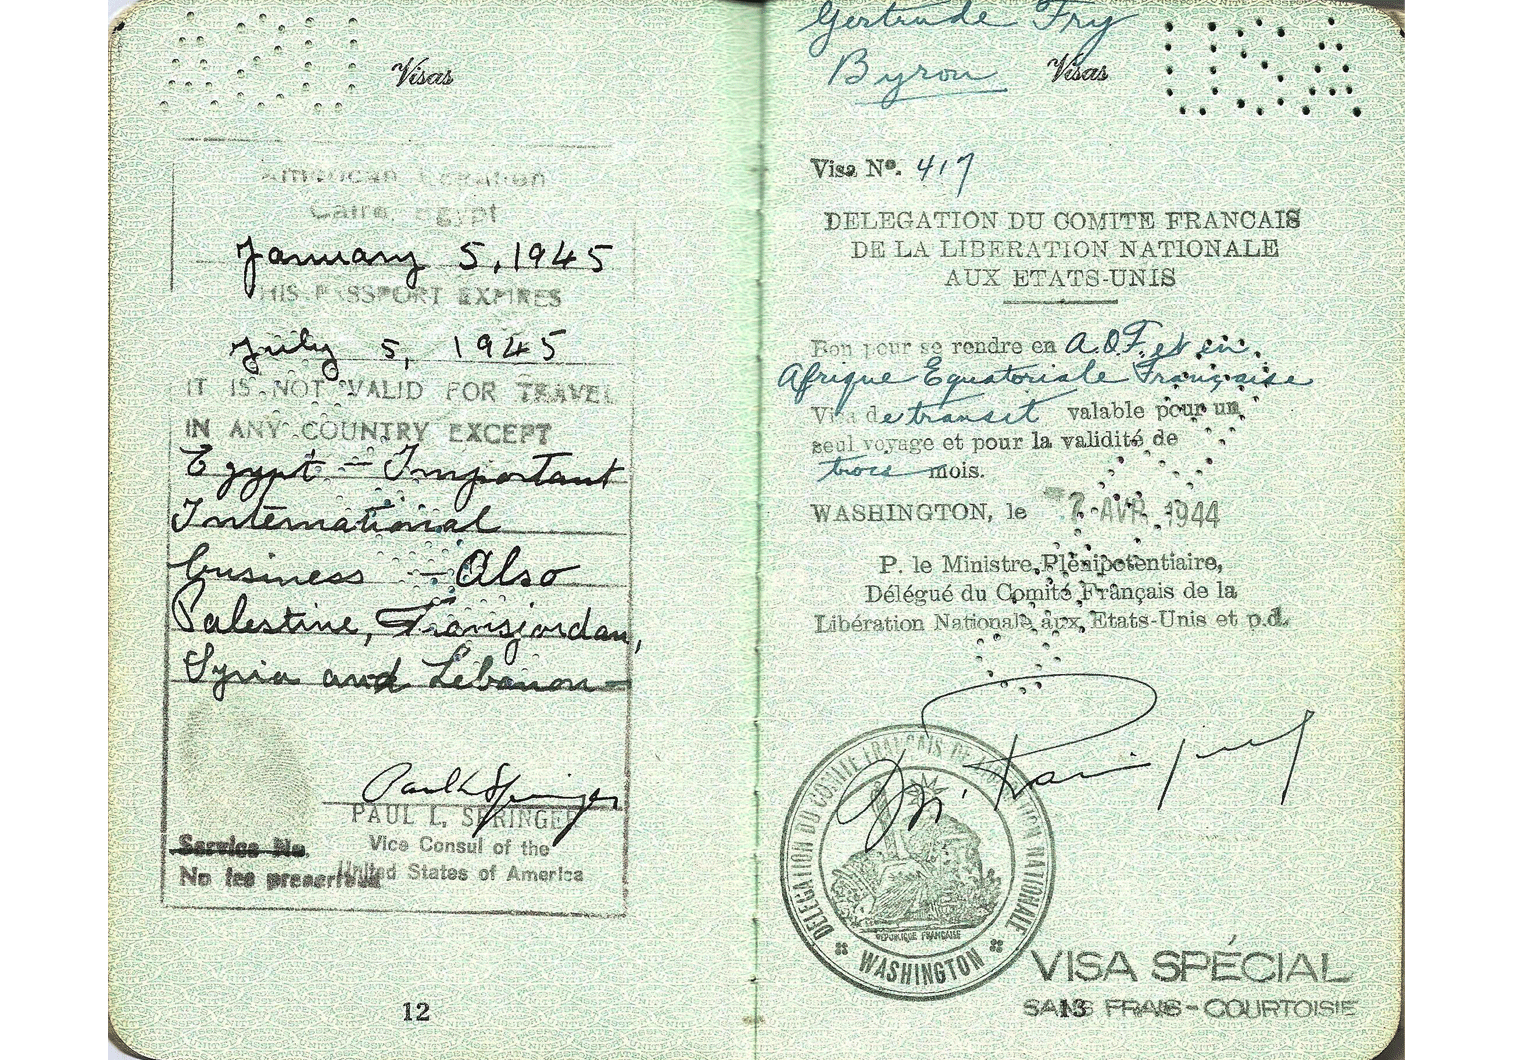 Visas
American Legation
Cairo, Egypt
January 5, 1945
THIS PASSPORT EXPIRES
July 5, 1945
IT IS NOT VALID FOR TRAVEL
IN ANY COUNTRY EXCEPT
Egypt - Important
International
business - Also
Palestine, Transjordan,
Syria and Lebanon -
Paul L Springer
PAUL L. SPRINGER
Vice Consul of the
United States of America
Service No.
No fee prescribed
12
Gertrude Fry
Byron
Visas
USA
Visa No. 417
DELEGATION DU COMITE FRANCAIS
DE LA LIBERATION NATIONALE
AUX ETATS-UNIS
Bon pour se rendre en A.O.F. et en
Afrique Equatoriale Française
Visa de transit valable pour un
seul voyage et pour la validité de
trois mois.
WASHINGTON, le 7 AVR 1944
P. le Ministre Plénipotentiaire,
Délégué du Comité Français de la
Libération Nationale aux Etats-Unis et p.d.
DELEGATION DU COMITE FRANCAIS DE LA LIBERATION NATIONALE
REPUBLIQUE FRANCAISE
WASHINGTON
VISA SPÉCIAL
SANS FRAIS - COURTOISIE
13